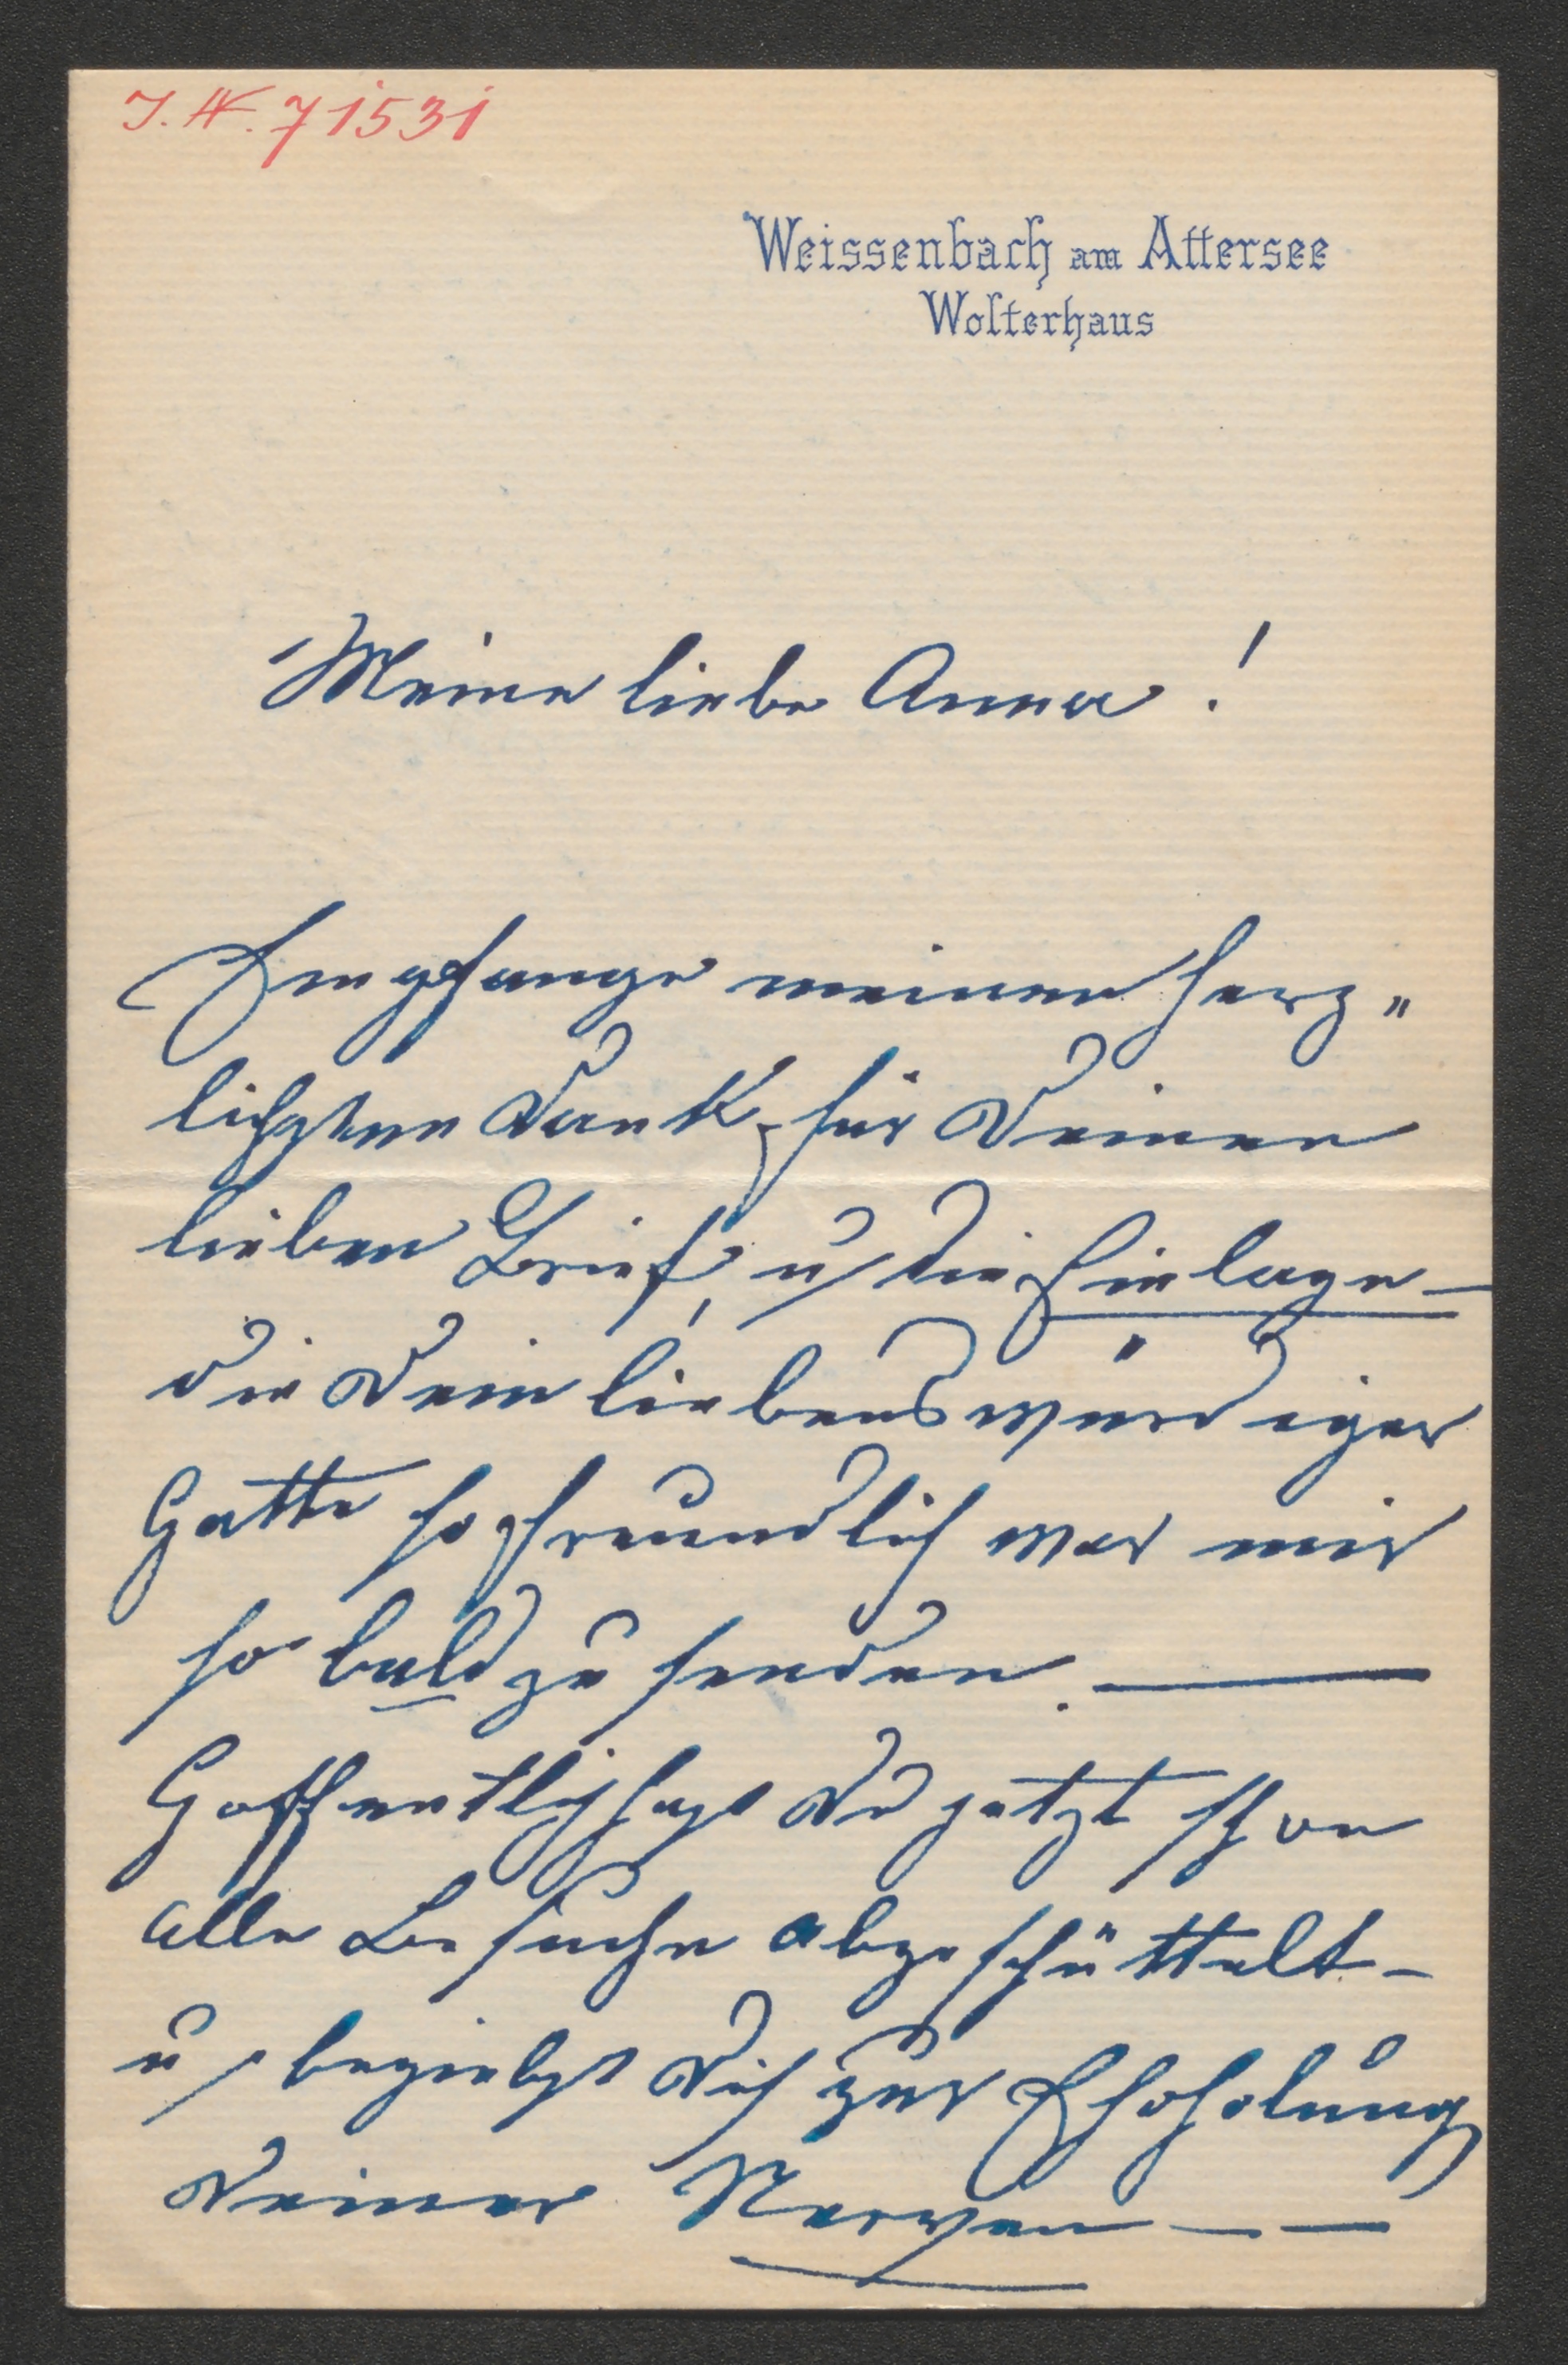 J. N. 71531
Weissenbach am Attersee
Wolterhaus
Meine liebe Anna!
Empfange meinen herz„
lichsten Dank für Deinen
lieben Brief, u/ die Einlage –
die Dein liebenswürdiger
Gatte so freundlich war mir
so bald zu senden. —
Hoffentlich hast Du jetzt schon
alle Besuche abgeschüttelt –
u/ begiebst Dich zur Erholung
Deiner Nerven – –